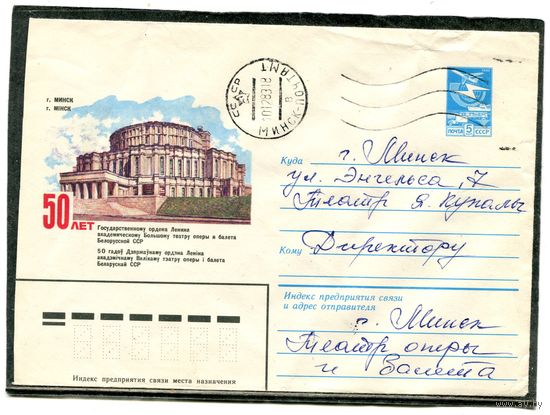 г. МИНСК
г. МІНСК
СССР
ПОЧТАМТ
МИНСК
ПОЧТА 5 СССР
50 ЛЕТ
Государственному ордена Ленина
академическому Большому театру оперы и балета
Белорусской ССР
50 гадоў Дзяржаўнаму ордэна Леніна
акадэмічнаму Вялікаму тэатру оперы і балета
Беларускай ССР
Куда г. Минск
ул. Энгельса, 7
Театр Я. Купалы
Кому Директору
Индекс предприятия связи
и адрес отправителя
г. Минск
Театр оперы
и балета
Индекс предприятия связи места назначения